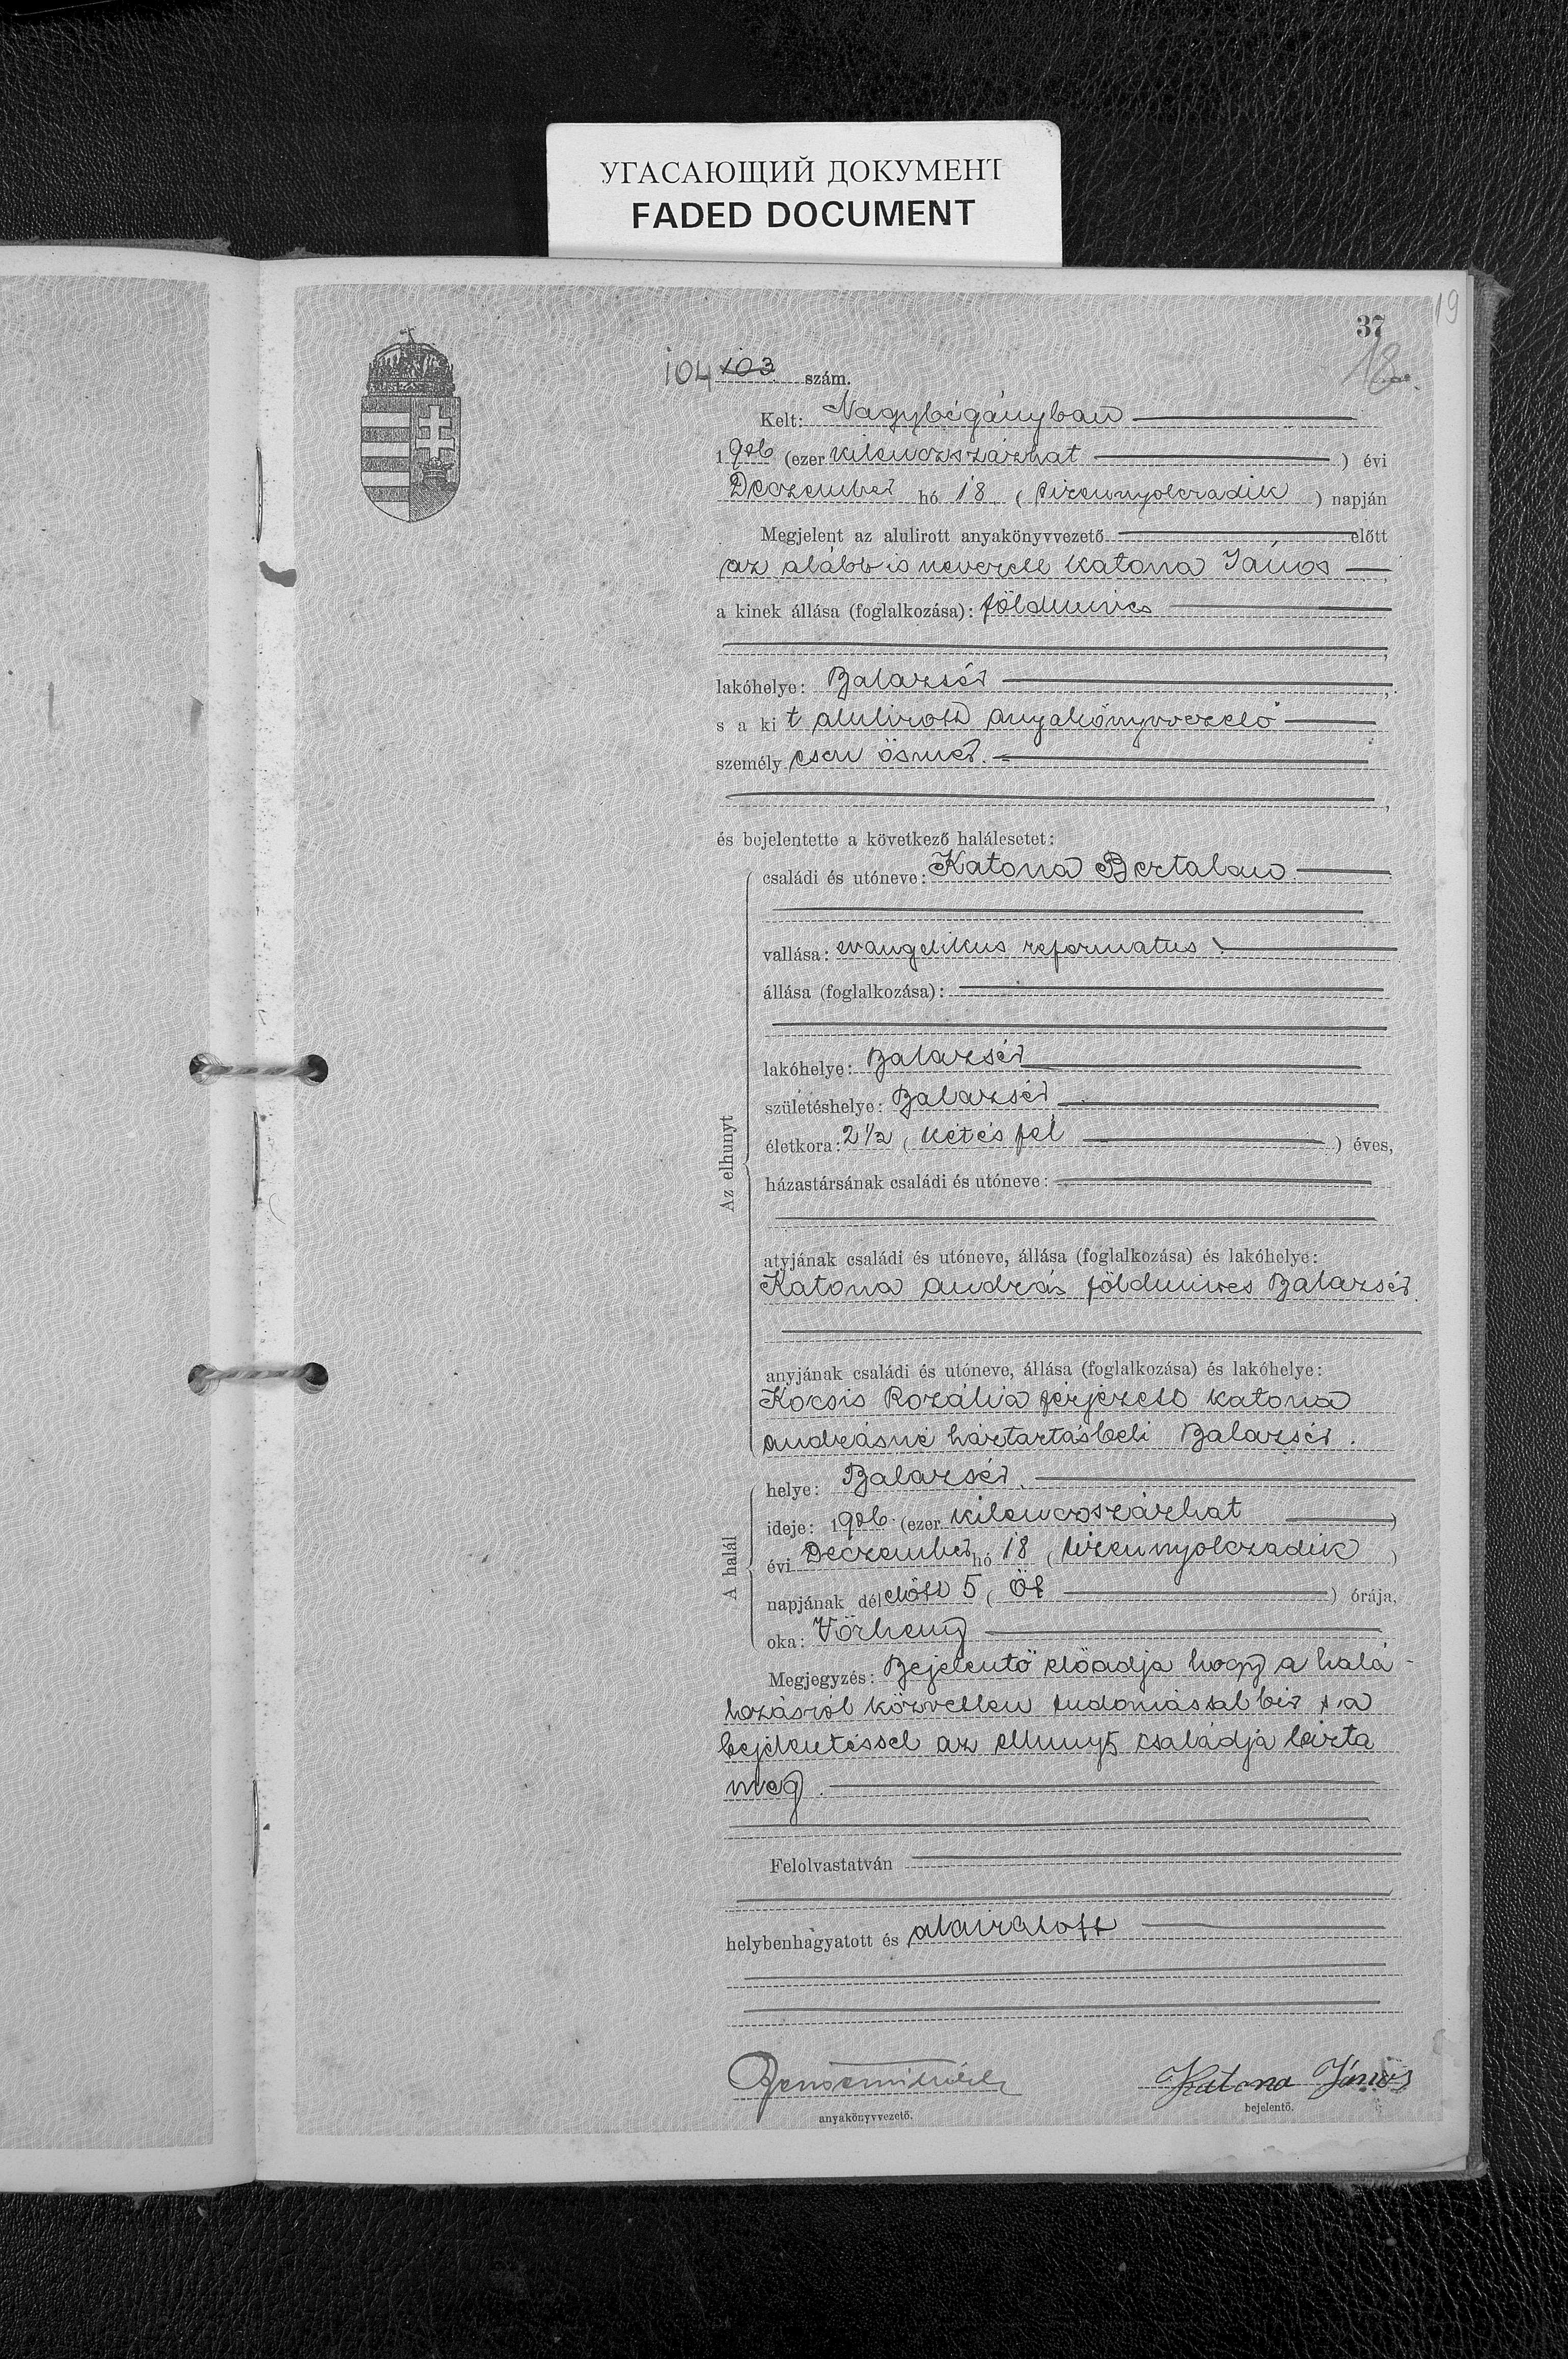 УГАСАЮЩИЙ ДОКУМЕНТ
FADED DOCUMENT
19
37
18
104 103 szám.
Kelt: Nagybégányban
1906 (ezer kilenczszázhat) évi
Deczember hó 18. (tizennyolczadik) napján
Megjelent az alulirott anyakönyvvezető előtt
az alább is nevezett Katona János
a kinek állása (foglalkozása): földmives
lakóhelye: Balazsér
s a kit alulirott anyakönyvvezető
személyesen ösmer.
és bejelentette a következő halálesetet:
Az elhunyt
családi és utóneve: Katona Bertalan
vallása: evangelikus reformatus
állása (foglalkozása):
lakóhelye: Balazsér
születéshelye: Balazsér
életkora: 2 1/2 (két és fél) éves,
házastársának családi és utóneve:
atyjának családi és utóneve, állása (foglalkozása) és lakóhelye:
Katona András földmives Balazsér.
anyjának családi és utóneve, állása (foglalkozása) és lakóhelye:
Kocsis Rozália férjezett Katona
Andrásné háztartásbeli Balazsér.
A halál
helye: Balazsér.
ideje: 1906. (ezer kilenczszázhat)
évi Deczember hó 18 (tizennyolczadik)
napjának délelőtt 5 (Öt) órája,
oka: Vörheny
Megjegyzés: Bejelentő előadja hogy a halá
lozásról közvetlen tudomással bir s a
bejelentéssel az elhunyt családja bizta
meg.
Felolvastatván
helybenhagyatott és aláiratott
anyakönyvvezető.
Katona János
bejelentő.